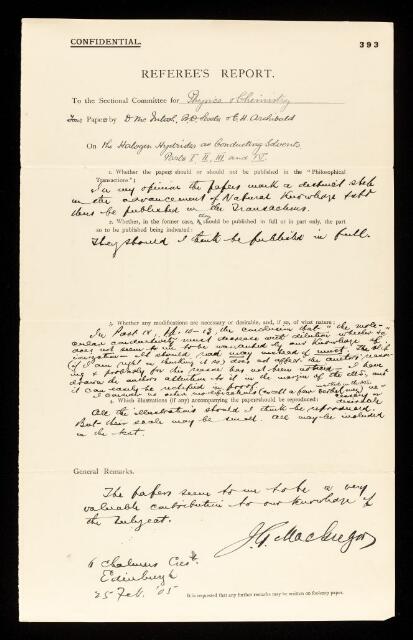 CONFIDENTIAL.
393
REFEREE'S REPORT.
To the Sectional Committee for Physics & Chemistry
Four Papers by D. McIntosh, B.D. Steele & E.H. Archibald
On The Halogen Hydrides as Conducting Solvents
Parts I II, III and IV.
1. Whether the papers should or should not be published in the "Philosophical
Transactions";
In my opinion the papers mark a distinct step
in the advancement of Natural Knowledge & shd
thus be published in the Transactions.
2. Whether, in the former case, they should be published in full or in part only, the part
so to be published being indicated:
They should I think be published in full.
3. Whether any modifications are necessary or desirable, and, if so, of what nature:
In Part IV, pp. 12-13, the conclusion that "the mole-
cular conductivity must decrease with dilution whether &c
does not seem to me to be warranted by our knowledge of
ionization. It should read may instead of must. The slip
(if I am right in thinking it so) does not affect the authors' reason-
ing & probably for this reason has not been noticed. I have
drawn the authors attention to it in the margin of the MS., and
it can easily be rectified in proof.
I consider no other modifications (except a few verbal ones) ne-
cessary or desirable
4. Which illustrations (if any) accompanying the paper should be reproduced:
All the illustrations should I think be reproduced.
But their scale may be small. All may be included
in the text.
General Remarks.
The papers seem to me to be a very
valuable contribution to our knowledge of
the subject.
J.G. MacGregor
Chalmers Cres.
Edinburgh
25 Feb. '05
It is requested that any further remarks may be written on foolscap paper.